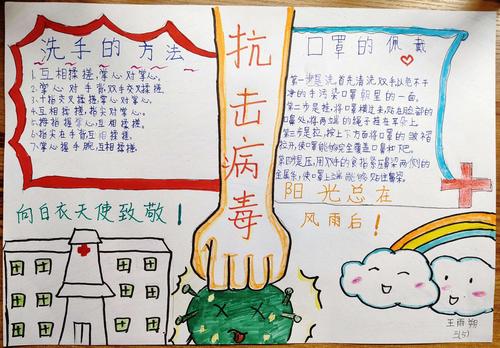 洗手的方法
1.互相揉搓,掌心对掌心。
2.掌心对手背,双手交叉揉搓。
3.十指交叉揉搓,掌心对掌心。
4.互相揉搓,指尖对掌心。
5.拇指握掌心,互相揉搓。
6.指尖在手背互相揉搓。
7.掌心握手腕,互相揉搓。
向白衣天使致敬!
抗击病毒
口罩的佩戴
第一步是洗,首先清洗双手以免不干
净的手污染口罩朝里的一面。
第二步是挂,将口罩横过来,贴在脸部的
口鼻处,将两端的绳子挂在耳朵上。
第三步是拉,按上下方向将口罩的皱褶
拉开,使口罩能够完全覆盖口鼻和
第四步是压,用双手的食指紧压鼻梁两侧的
金属条,使口罩上端能够贴住鼻梁。
阳光总在
风雨后!
王雨朔